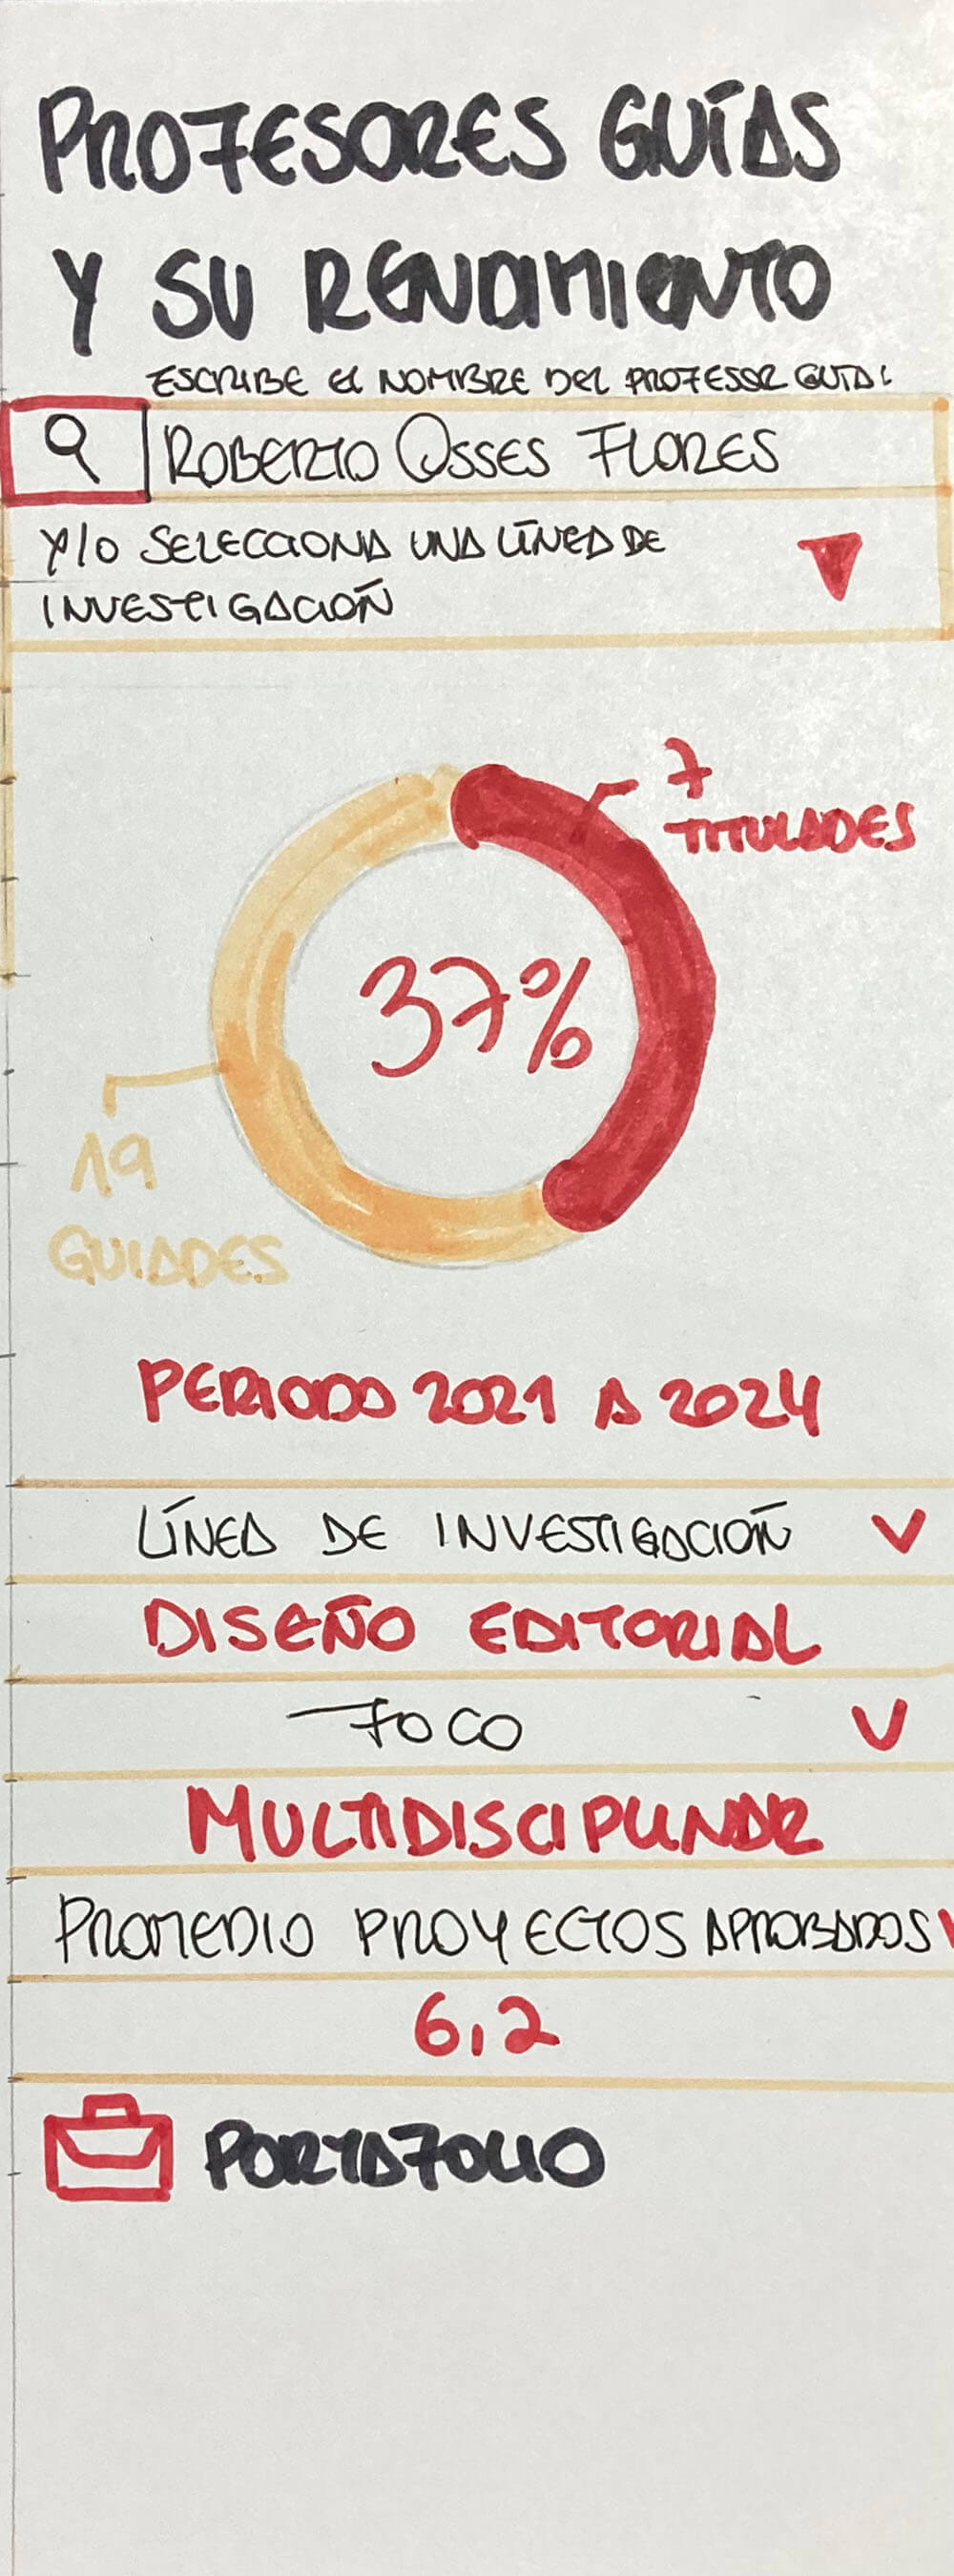 PROFESORES GUÍAS
Y SU RENDIMIENTO
ESCRIBE EL NOMBRE DEL PROFESOR GUÍA:
ROBERTO OSSES FLORES
Y/O SELECCIONA UNA LÍNEA DE
INVESTIGACIÓN
7
TITULADES
37%
19
GUIADES
PERIODO 2021 A 2024
LÍNEA DE INVESTIGACIÓN
DISEÑO EDITORIAL
FOCO
MULTIDISCIPLINAR
PROMEDIO PROYECTOS APROBADOS
6,2
PORTAFOLIO